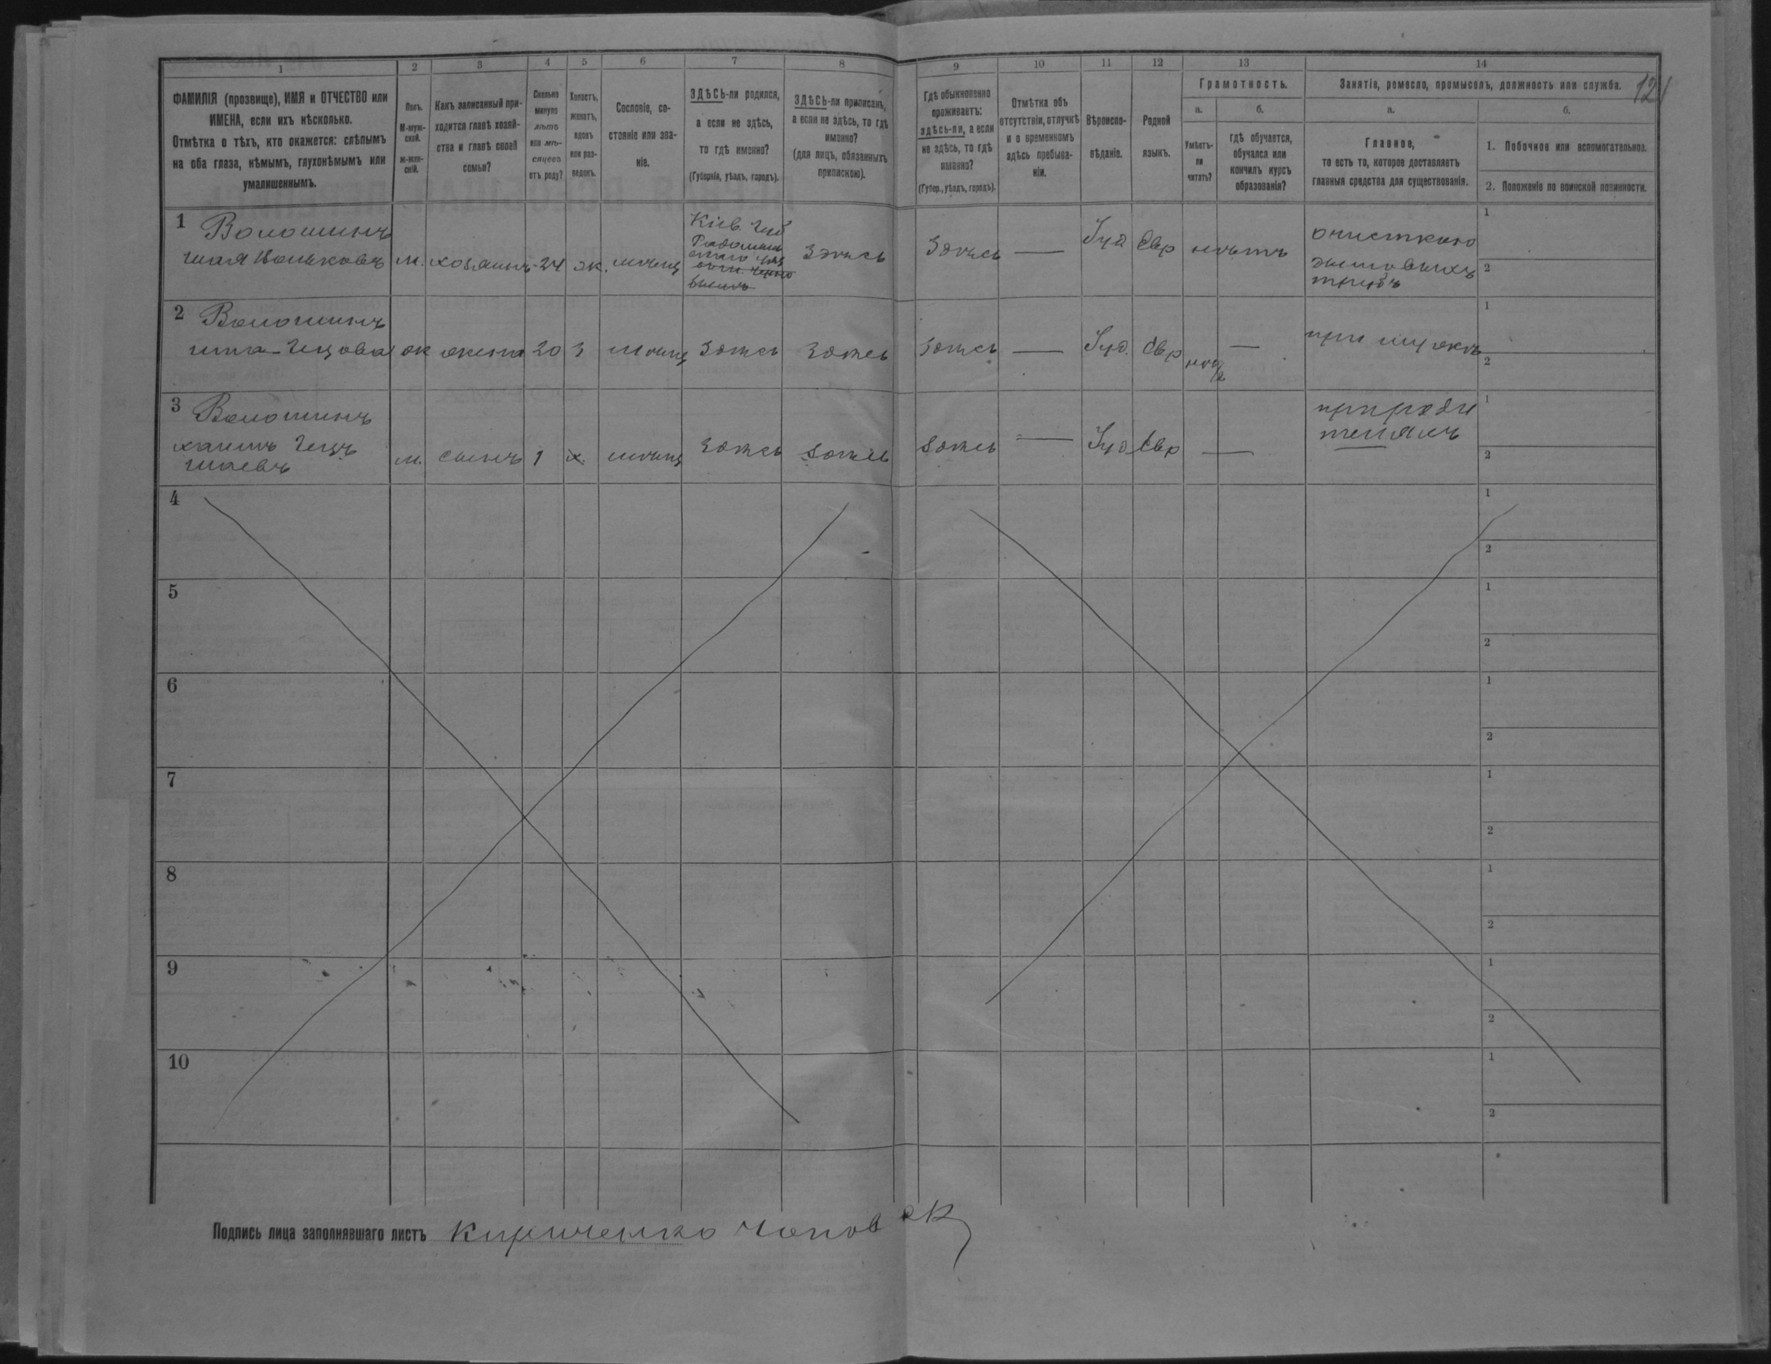 1 2 3 4 5 6 7 8 9 10 11 12 13 14
ФАМИЛІЯ (прозвище), ИМЯ и ОТЧЕСТВО или
ИМЕНА, если ихъ нѣсколько.
Отмѣтка о тѣхъ, кто окажется: слѣпымъ
на оба глаза, нѣмымъ, глухонѣмымъ или
умалишеннымъ.
Полъ.
М-муж-
ской.
ж-жен-
скій.
Какъ записанный при-
ходится главѣ хозяй-
ства и главѣ своей
семьи?
Сколько
минуло
лѣтъ
или мѣ-
сяцевъ
отъ роду?
Холостъ,
женатъ,
вдовъ
или раз-
веденъ.
Сословіе, со-
стояніе или зва-
ніе.
ЗДѢСЬ-ли родился,
а если не здѣсь,
то гдѣ именно?
(Губернія, уѣздъ, городъ).
ЗДѢСЬ-ли приписанъ,
а если не здѣсь, то гдѣ
именно?
(для лицъ, обязанныхъ
припискою).
Гдѣ обыкновенно
проживаетъ:
здѣсь-ли, а если
не здѣсь, то гдѣ
именно?
(Губер., уѣздъ, городъ).
Отмѣтка объ
отсутствіи, отлучкѣ
и о временномъ
здѣсь пребыва-
ніи.
Вѣроиспо-
вѣданіе.
Родной
языкъ.
Грамотность.
а.
Умѣетъ-
ли
читать?
б.
гдѣ обучается,
обучался или
кончилъ курсъ
образованія?
Занятіе, ремесло, промыселъ, должность или служба.
121
а.
Главное,
то есть то, которое доставляетъ
главныя средства для существованія.
б.
1. Побочное или вспомогательное.
2. Положеніе по воинской повинности.
1 Волошинъ
м. хозяинъ 24 ж. мѣщ
Кіев. губ
Здѣсь Здѣсь — Іуд Евр нѣтъ
очисткою
дымовыхъ
трубъ
1
2
2 Волошинъ
жена 20 з мѣщ Здѣсь Здѣсь Здѣсь — Іуд. Евр — при мужѣ
1
2
3 Волошинъ
м. сынъ 1 х. мѣщ Здѣсь Здѣсь Здѣсь — Іуд Евр —
при роди
теляхъ
1
2
4 1
2
5 1
2
6 1
2
7 1
2
8 1
2
9 1
2
10 1
2
Подпись лица заполнявшаго листъ Кириченко